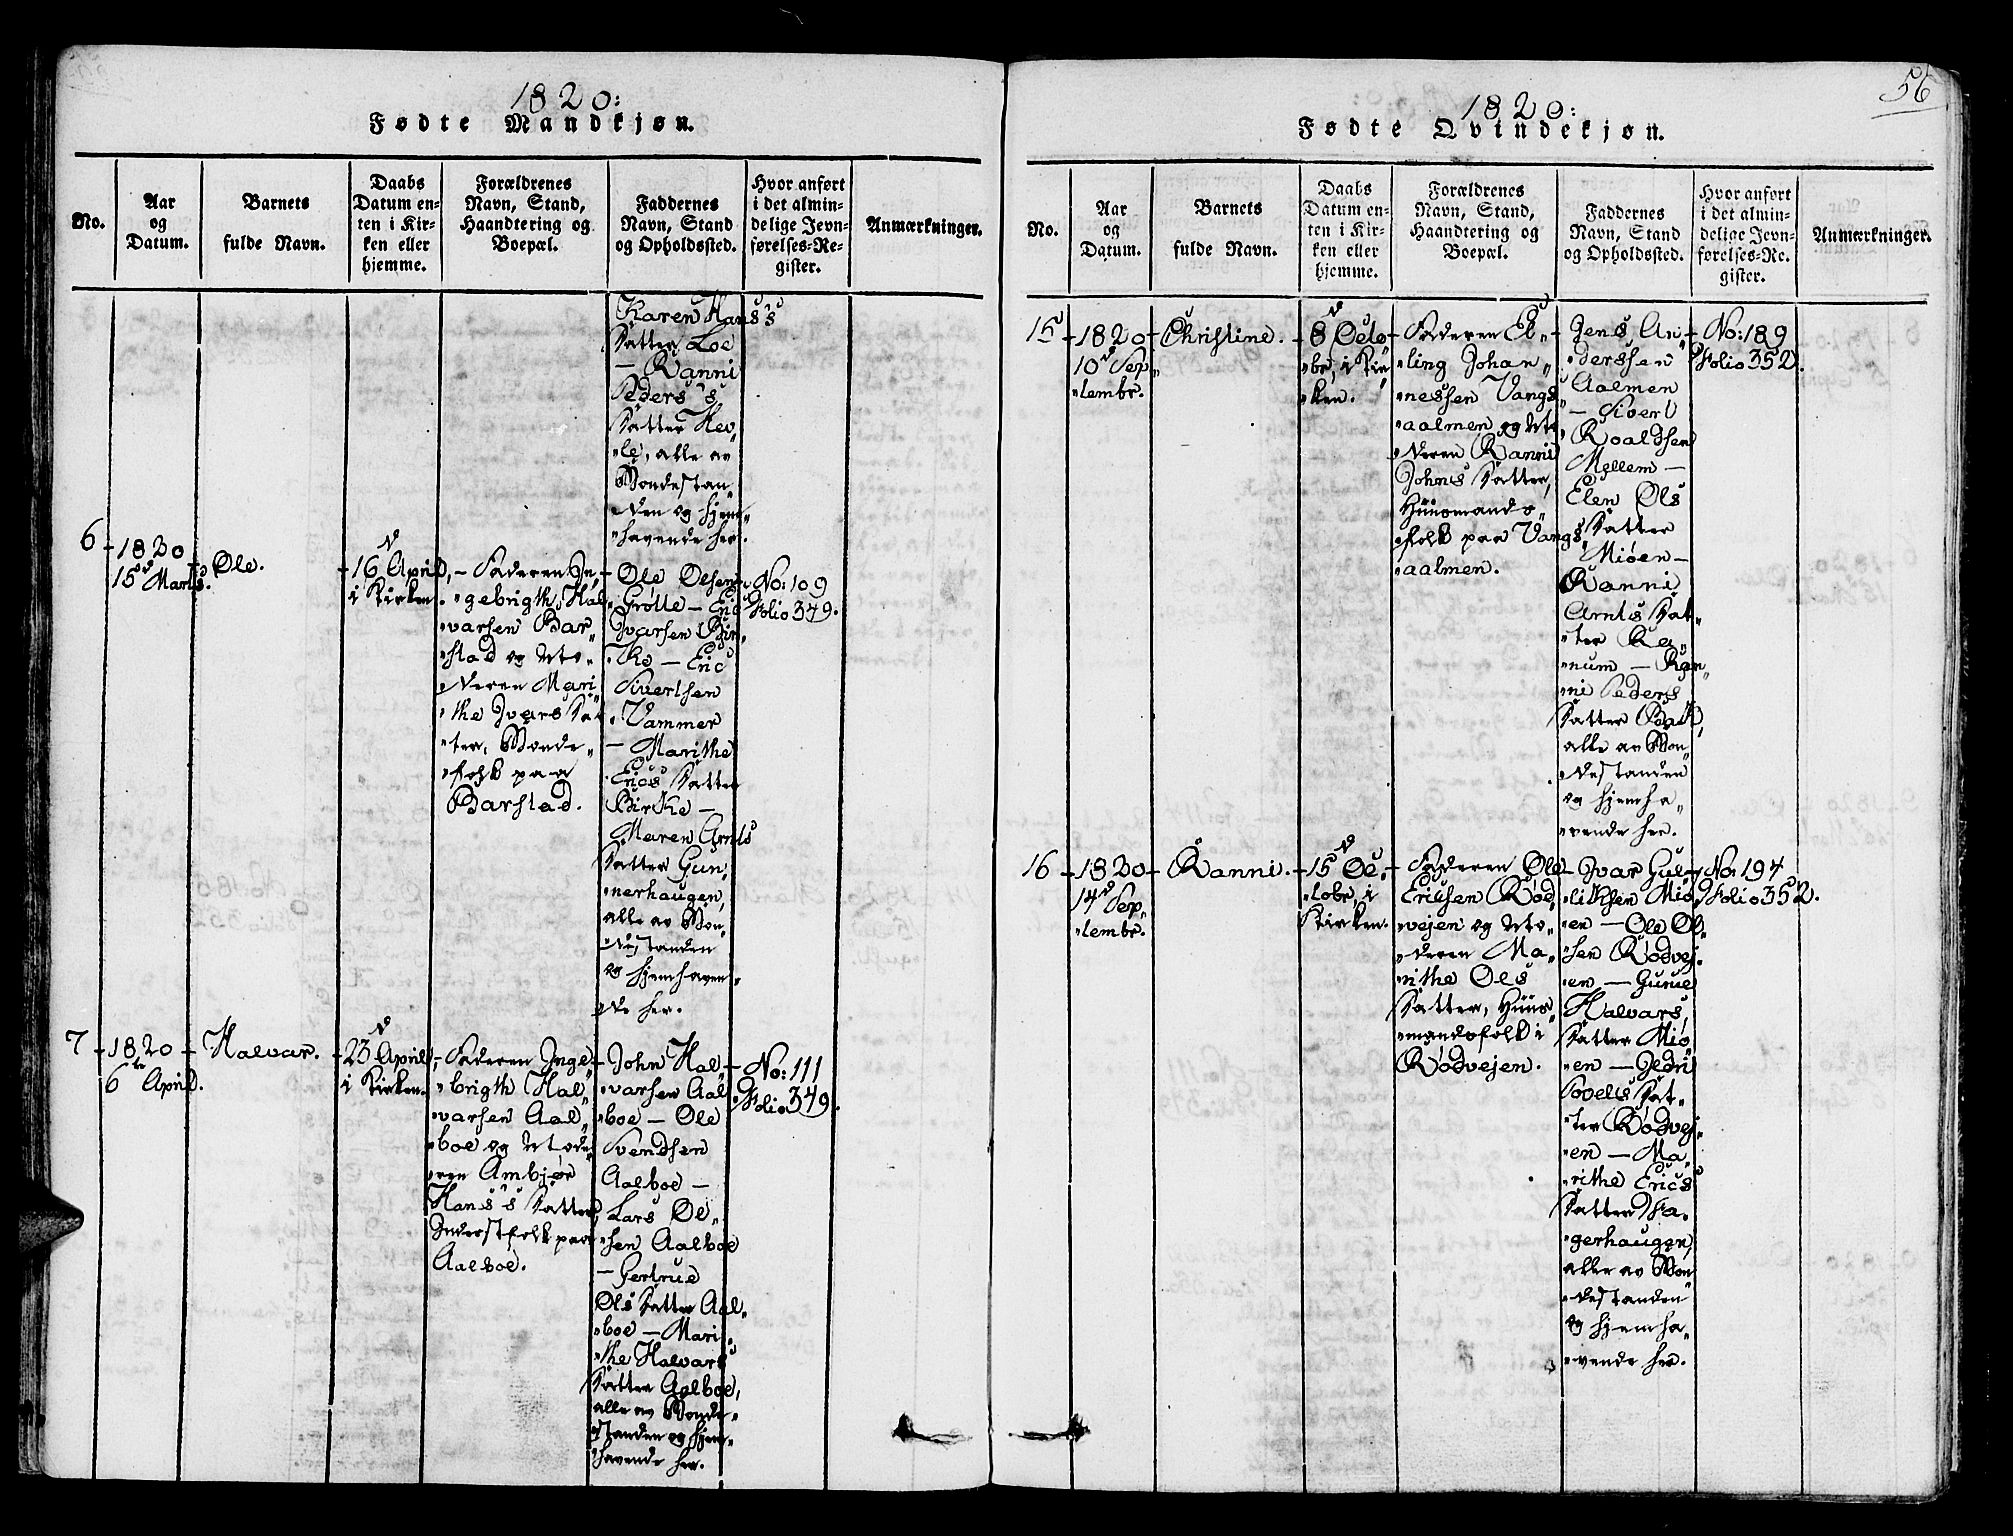 1820:
Fødte Mandkjøn.
No.
Aar
og
Datum.
Barnets
fulde Navn.
Daabs
Datum en-
ten i Kir-
ken eller
hjemme.
Forældrenes
Navn, Stand,
Haandtering og
Boepæl.
Faddernes
Navn, Stand
og Opholdssted.
Hvor anført
i det almin-
delige Jevn-
førelses-Re-
gister.
Anmærkninger.
Karen Hans's
Datter Loe
— Ranni
Peders's
Datter Hev„
„le, alle av
Bondestan„
„den og hjem„
„havende her.
6
1820
15d Marts.
Ole.
16d April,
i Kirken.
Faderen In„
„gebrigth Hal„
„varsen Bar„
„stad og Mo„
„deren Mari„
„the Ivars Dat„
„ter, Bonde„
„folk paa
Barstad.
Ole Olsen
Grøtte — Eric
Ivarsen Bir„
„ke — Eric
Sivertsen
Vammer
— Marithe
Erics Datter
Birke —
Maren Arnts
Datter Gun„
„nerhaugen,
alle av Bon„
„destanden
og hjemhaven„
„de her.
No: 109
Folio 349.
7
1820
6te April.
Halvar.
23d April,
i Kirken.
Faderen Inge„
„brigth Hal„
„varsen Aal„
„boe og Mode„
„ren Ambjør
Hans's Datter,
Inderstfolk paa
Aalboe.
John Hal„
„varsen Aal„
„boe — Ole
Svendsen
Aalboe —
Lars Ol„
„sen Aalboe
— Gertrue
Ols Datter Aal„
„boe — Mari„
„the Halvars
Datter Aalboe,
alle av Bonde„
„standen og hjem„
„havende her.
No: 111
Folio 349.
56
1820:
Fødte Qvindekjøn.
No.
Aar
og
Datum.
Barnets
fulde Navn.
Daabs
Datum en-
ten i Kir-
ken eller
hjemme.
Forældrenes
Navn, Stand,
Haandtering og
Boepæl.
Faddernes
Navn, Stand
og Opholdssted.
Hvor anført
i det almin-
delige Jevn-
førelses-Re-
gister.
Anmærkninger.
15
1820
10d Sep„
„tembr.
Christine.
8d Octo„
„br, i Kir„
„ken.
Faderen El„
„ling Johan„
„nessen Vangs„
„aalmen og Mo„
„deren Ranni
Johns Datter,
Huusmands„
„folk paa Vangs„
„aalmen.
Jens An„
„derssen
Aalmen
— Sivert
Roaldsen
Mellem —
Elen Ols
Datter
Miøen —
Ranni
Arnts Dat„
„ter Re„
„num — Ran„
„ni Peders
Datter Bak,
alle av Bon„
„destanden
og hjemha„
„vende her.
No: 189
Folio 352.
16
1820
14d Sep„
„tembr.
Ranni.
15d Oc„
„tobr, i
Kirken.
Faderen Ole
Ericsen Rød„
„vejen og Mo„
„deren Ma„
„rithe Ols
Datter, Huus„
„mandsfolk i
Rødvejen.
Ivar Gul„
„liksen Mio„
„en — Ole Ol„
„sen Rødvej„
„en — Gurue
Halvars
Datter Mio„
„en — Jedri
Povels Dat„
„ter Rødvej„
„en — Ma„
„rithe Erics
Datter Fa„
„gerhaugen,
alle av Bon„
„destanden
og hjemha„
„vende her.
No: 194
Folio 352.